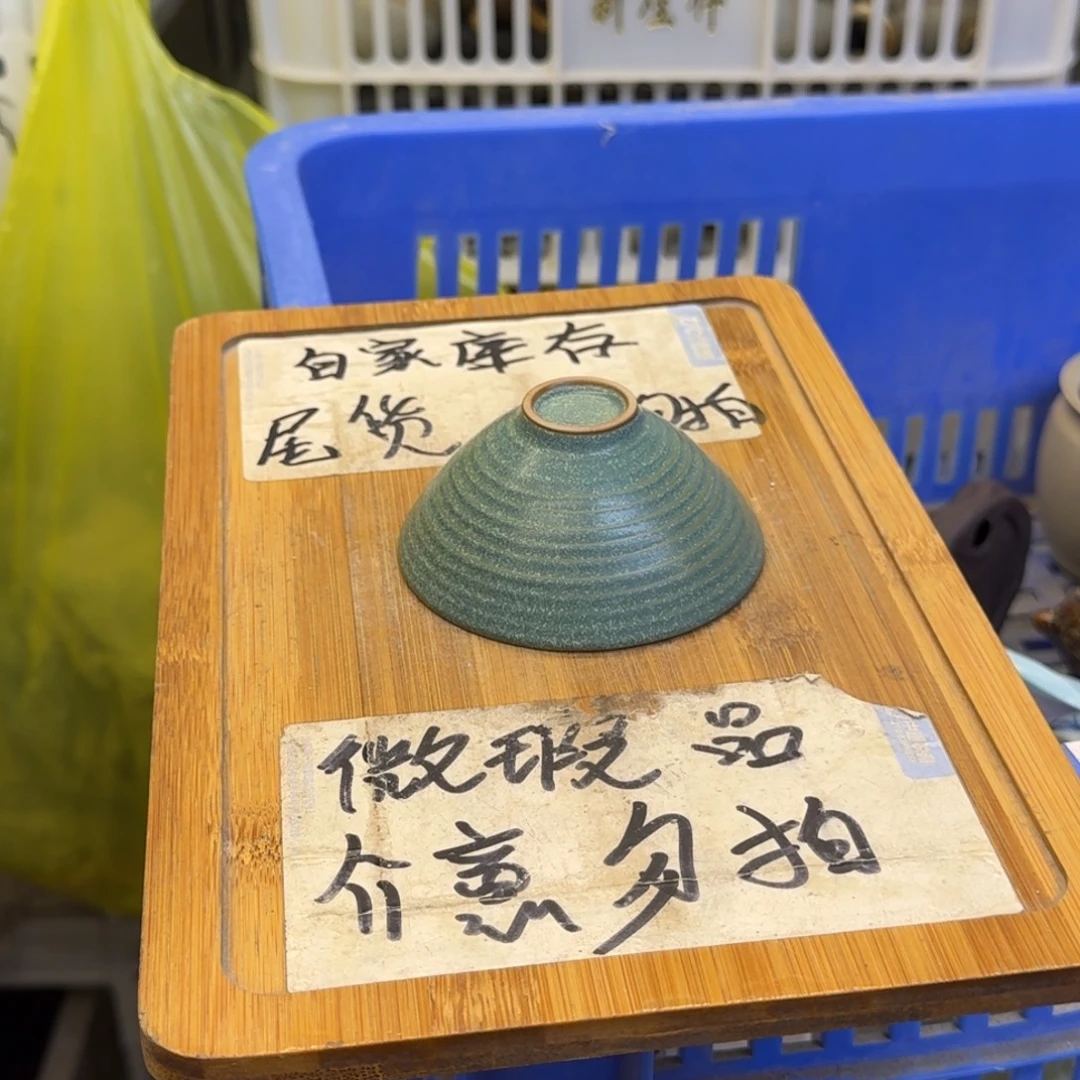 自家库存
尾货 拍
微瑕品
介意勿拍